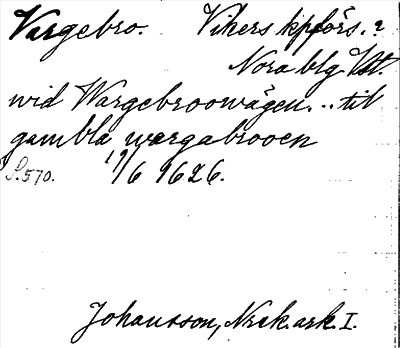 Vargebro. Vikers kpförs.?
Nora blg. Vstl.
wid Wargebroowägen... til
gambla wargabrooen
S. 570. 19/6 1626.
Johansson, Nsck.ark. I.